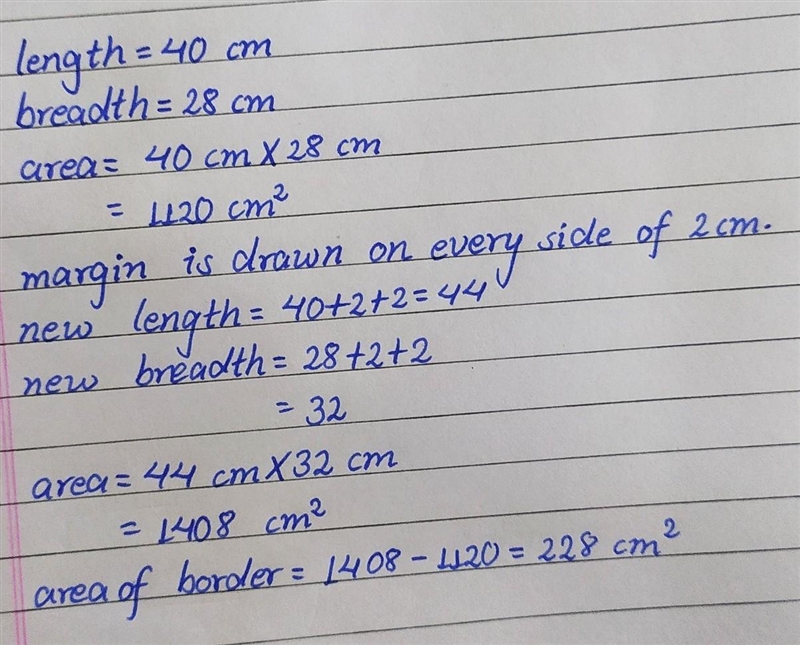 length = 40 cm
breadth = 28 cm
area = 40 cm X 28 cm
= 1120 cm²
margin is drawn on every side of 2 cm.
new length = 40+2+2 = 44
new breadth = 28+2+2
= 32
area = 44 cm X 32 cm
= 1408 cm²
area of border = 1408 - 1120 = 228 cm²